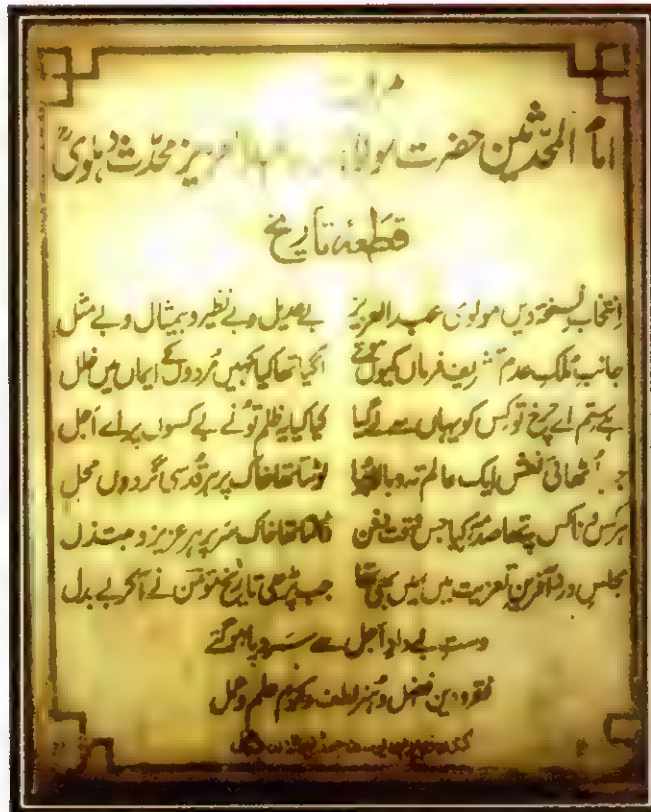 امام المحدثین حضرت مولانا عبد العزیز محدث دہلویؒ
قطعۂ تاریخ
انتخابِ نسخۂ دیں مولوی عبد العزیز بے عدیل و بے نظیر و بیمثال و بے مثل
جانبِ ملکِ عدم تشریف فرما کیوں ہوئے آگیا تھا کیا کہیں مُردوں کے ایماں میں خلل
ہے ستم اے چرخ تو کس کو یہاں سے لے گیا کیا کیا یہ ظلم تو نے بے کسوں پر اے اجل
جب اُٹھائی نعش ایک عالم تہ و بالا ہوا لوٹتا تھا خاک پر ہر قدسی گردوں محل
ہر کس و ناکس پہ تھا صدمہ کیا جس وقت دفن ڈالتا تھا خاک سر پر ہر عزیز و مبتذل
مجلسِ درد آفرینِ تعزیت میں میں بھی تھا جب پڑھی تاریخ مومن نے آکر بے بدل
دستِ بے دادِ اجل سے بے سر و پا ہو گئے
فقر و دین فضل و ہنر لطف و کرم علم و عمل